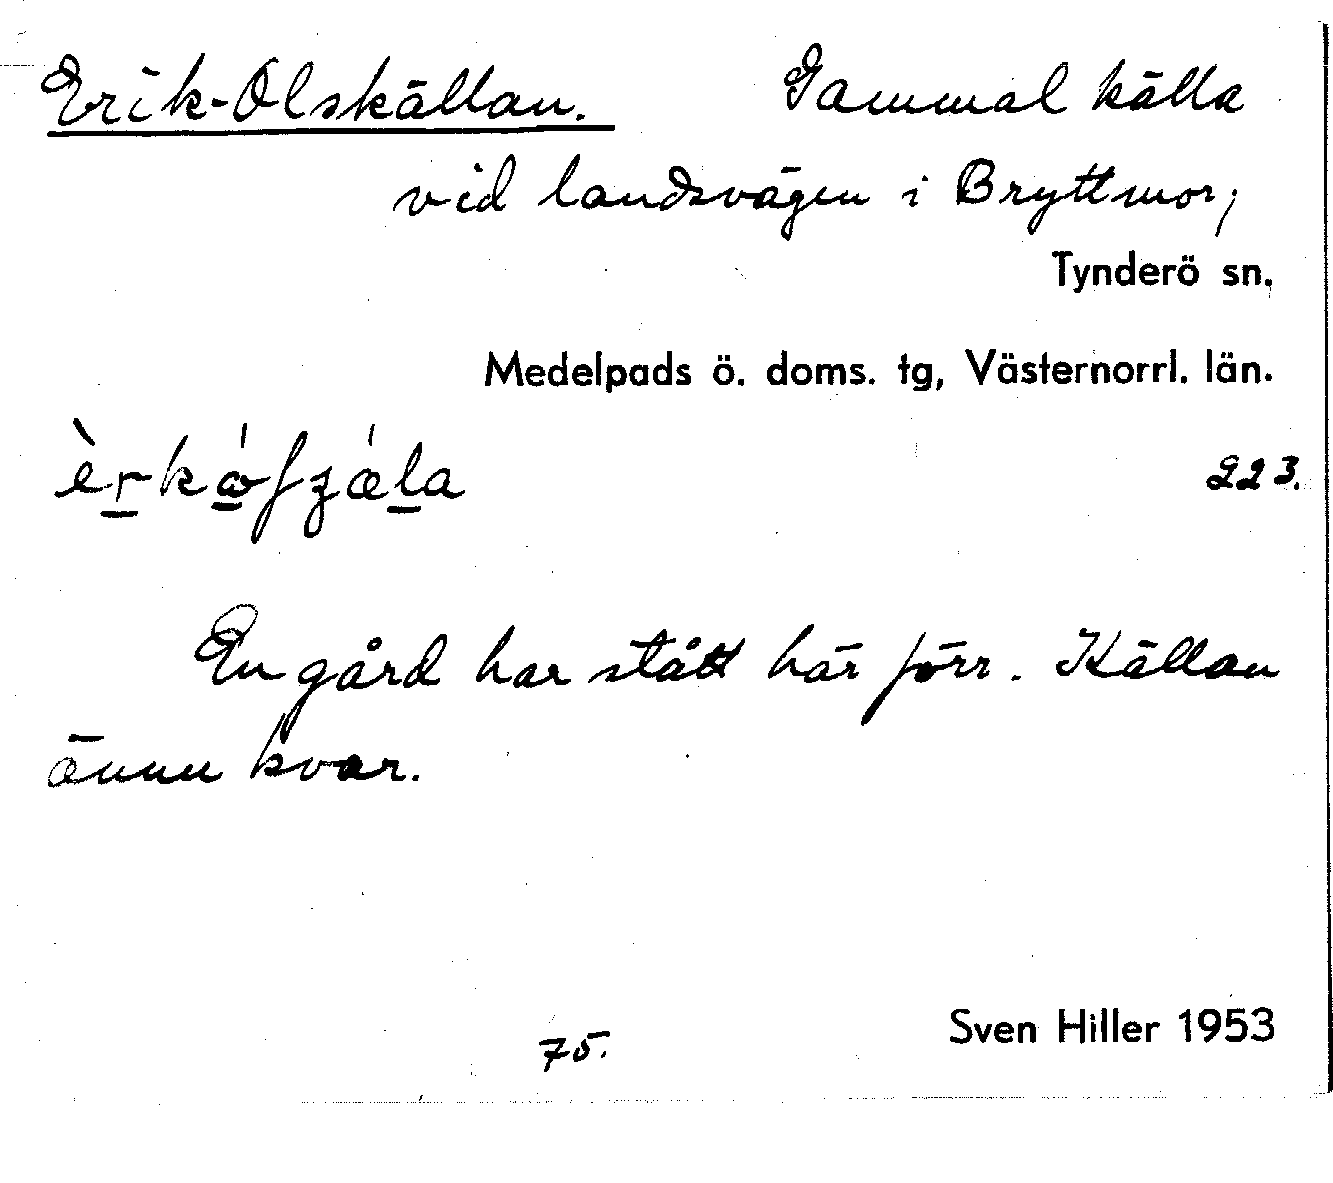 Erik-Olskällan. Gammal källa
vid landsvägen i Bryttmor,
Tynderö sn.
Medelpads ö. doms. tg, Västernorrl. län.
223.
En gård har stått här förr. Källan
ännu kvar.
75.
Sven Hiller 1953